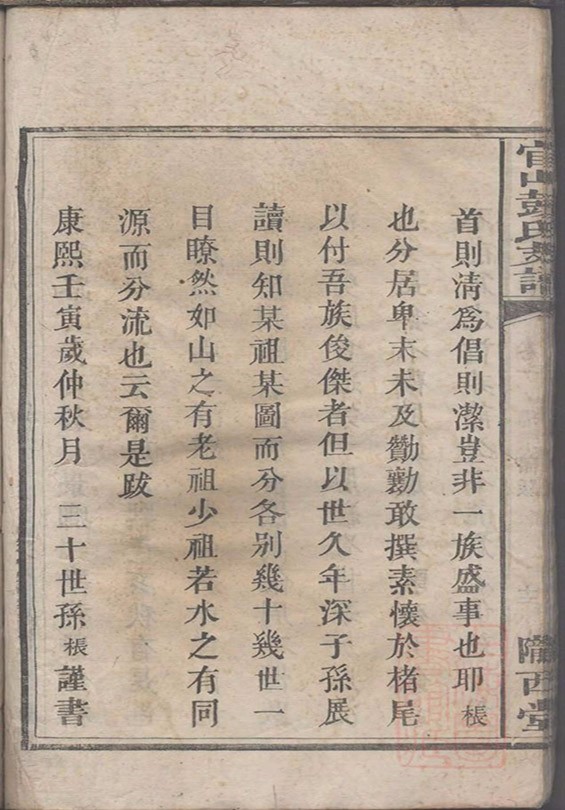 官山彭氏族譜
隴西堂
首則清為倡則潔豈非一族盛事也耶棖
也分居卑末未及勷勷敢撰素懷於楮尾
以付吾族俊傑者但以世久年深子孫展
讀則知某祖某圖而分各別幾十幾世一
目瞭然如山之有老祖少祖若水之有同
源而分流也云爾是跋
康熙壬寅歲仲秋月 三十世孫棖謹書